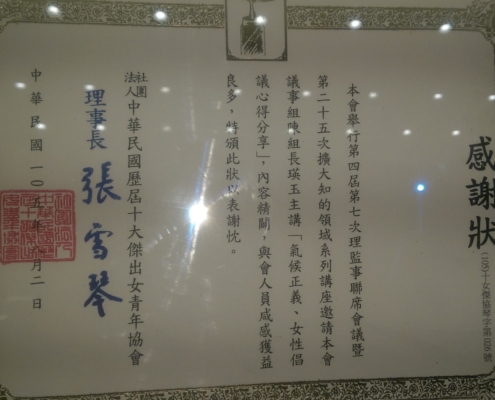 感謝狀
(105)十女傑協琴字第108號
本會舉行第四屆第七次理監事聯席會議暨
第二十五次擴大知的領域系列講座邀請本會
議事組陳組長瑛玉主講「氣候正義、女性倡
議心得分享」,內容精闢,與會人員咸感獲益
良多,特頒此狀以表謝忱。
社團法人中華民國歷屆十大傑出女青年協會
理事長 張雪琴
中華民國一○五年 月二日